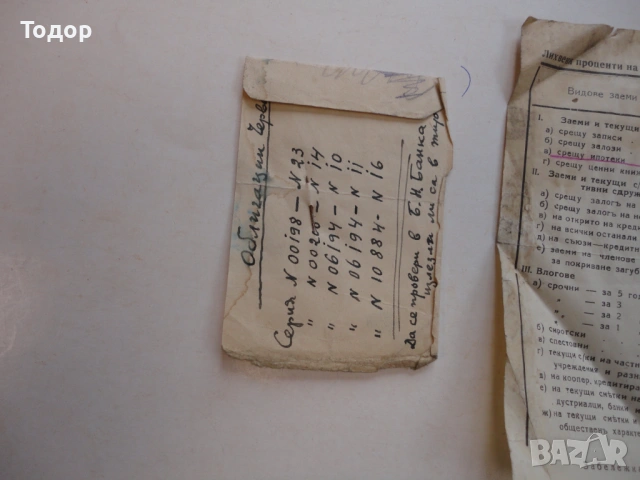 Тодор
Облигации Черве
Серия N 00198 – N 23
" N 00200 – N 14
" N 06194 – N 10
" N 06194 – N 11
" N 10884 – N 16
Да се провери в Б.Н. Банка
излезли ли са в тираж
Лихвени проценти на
Видове заеми
I. Заеми и текущи
а) срещу записи
б) срещу залози
в) срещу ипотеки
г) срещу ценни книж
II. Заеми и текущи с
тивни сдруж
а) срещу залогъ на
б) срещу залогъ на
в) на открито на креди
г) на всички останали
д) на съюза—кредитн
е) заеми на членове
за покриване загуб
III. Влогове
а) срочни — за 5 год
" — за 3
" — за 2
" — за 1
б) сиротски
в) спестовни
г) текущи с/ки на частн
учреждения и разни
д) на коопер. кредитира
е) на текущи сметки на
дустриалци, банки и
ж) на текущи сметки и
общественъ характе
Забележка
BAZAR
bg